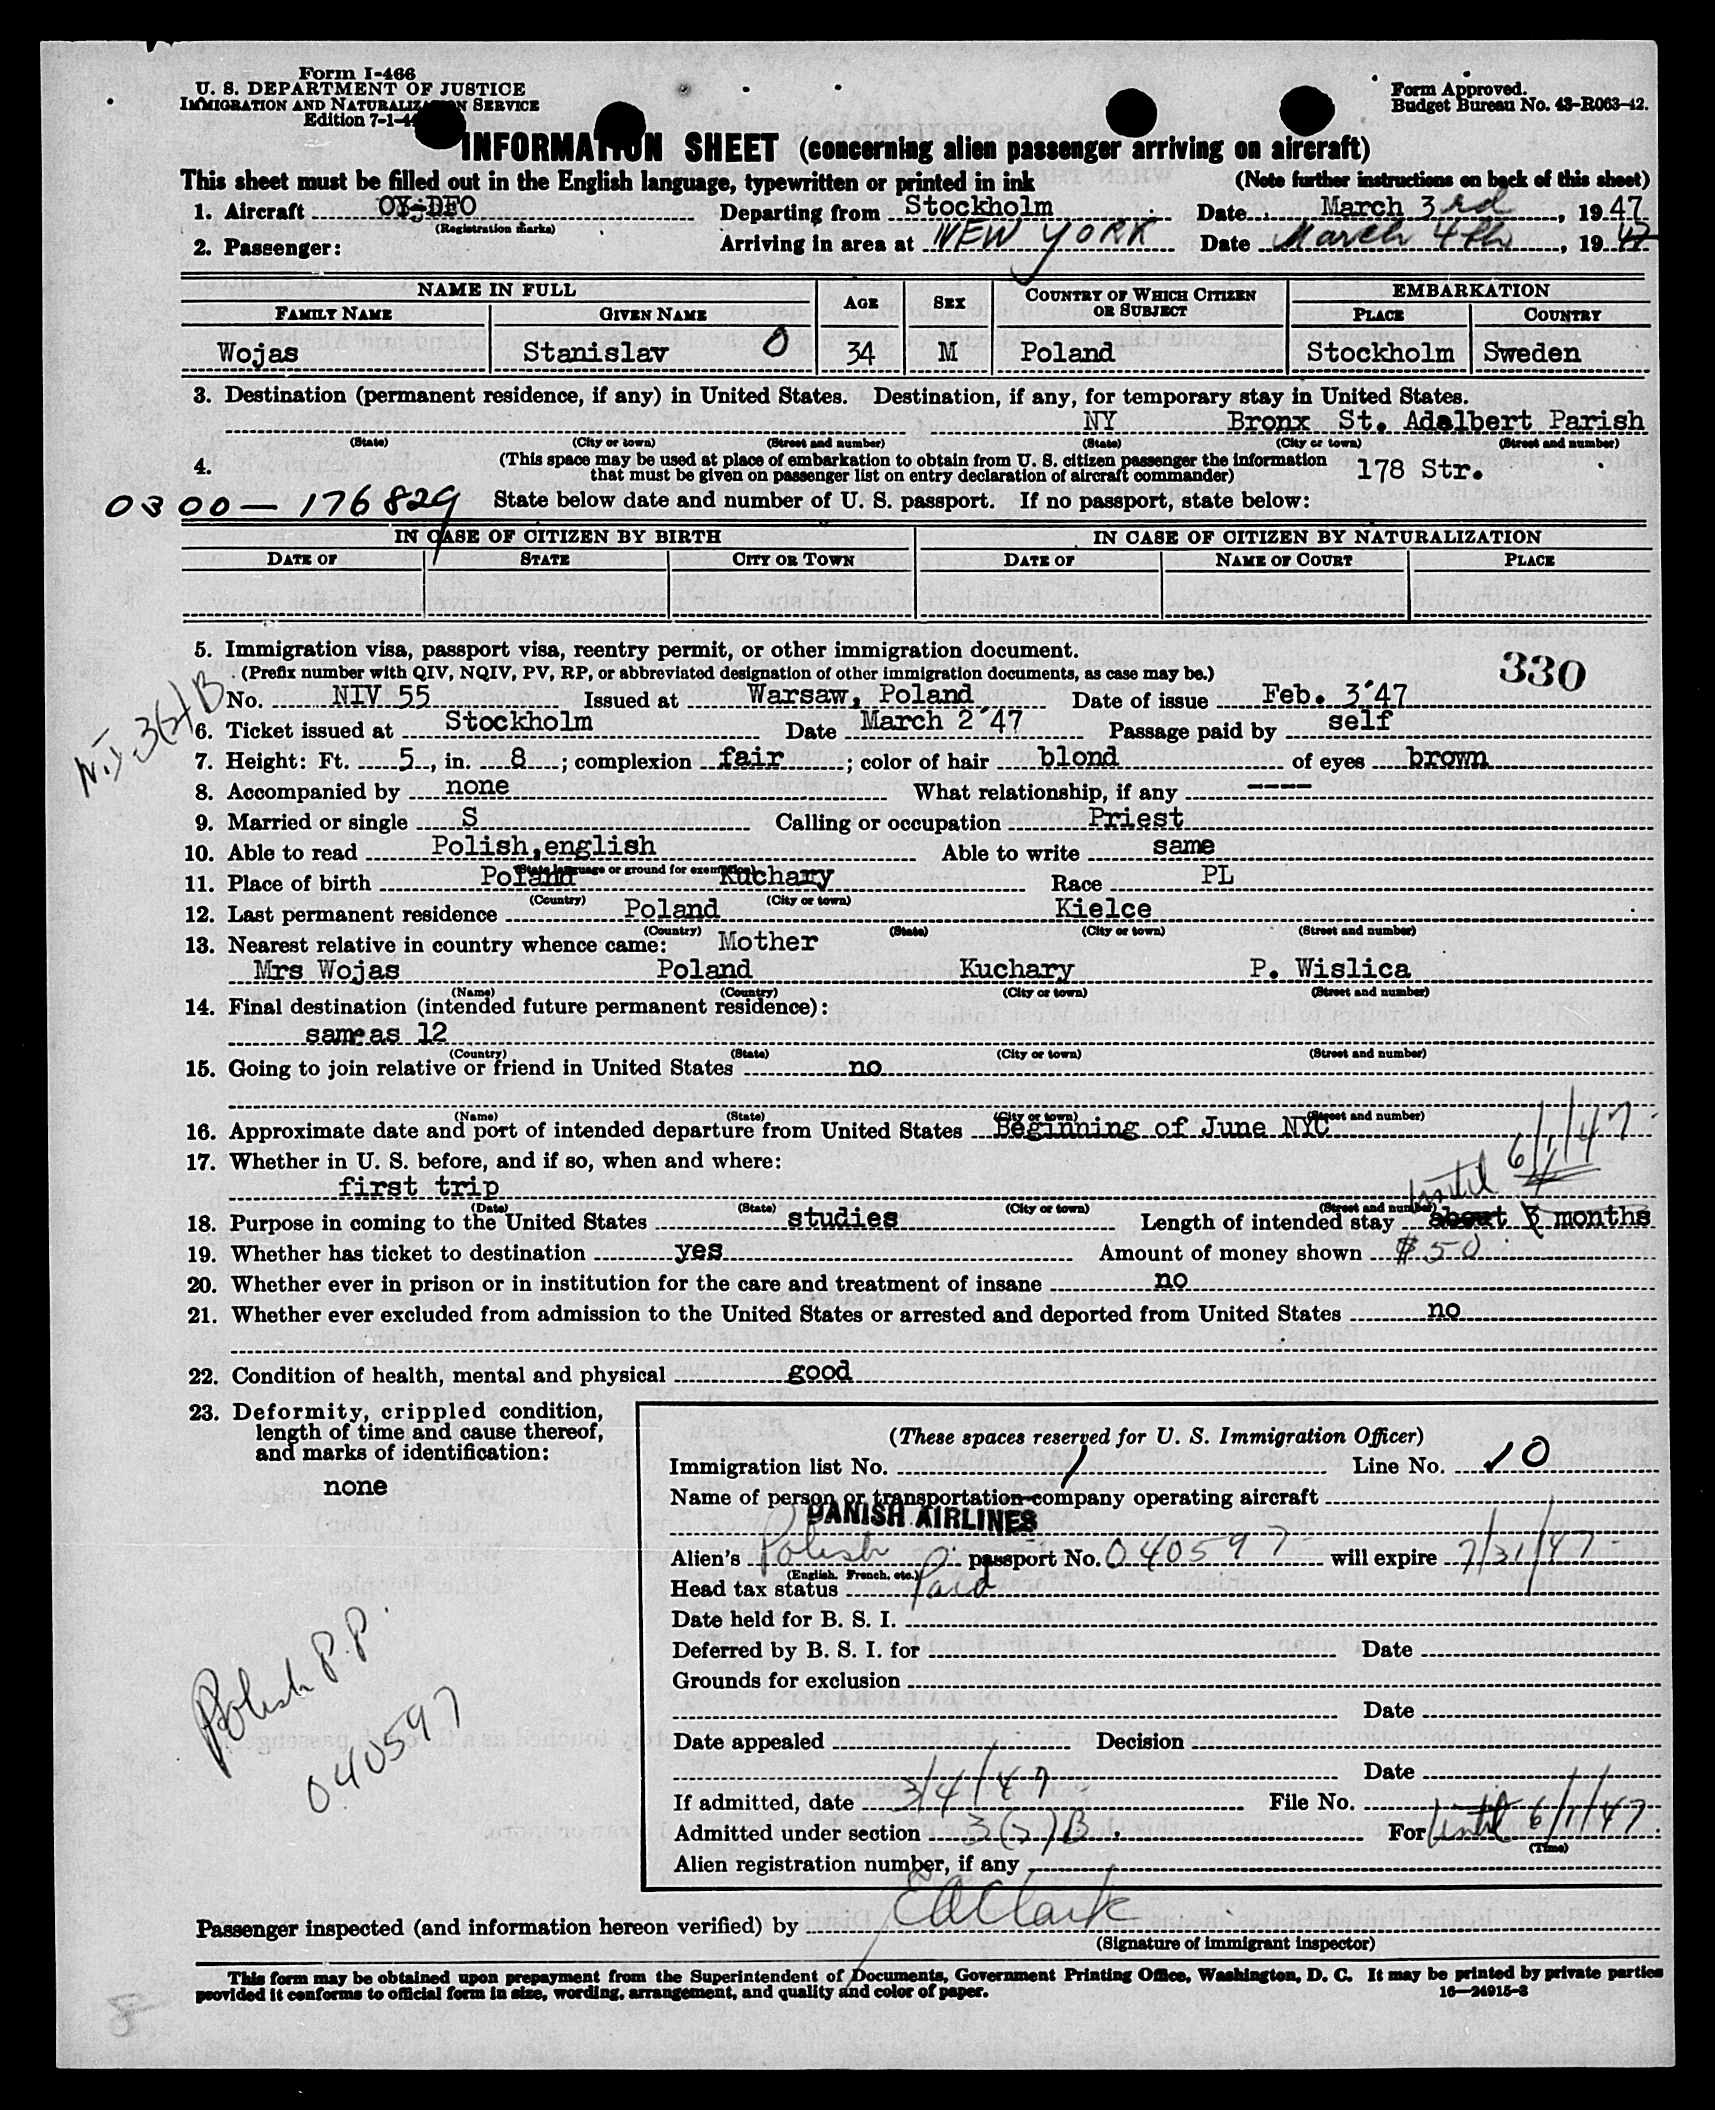 Form I-466
U. S. DEPARTMENT OF JUSTICE
IMMIGRATION AND NATURALIZATION SERVICE
Edition 7-1-44
Form Approved.
Budget Bureau No. 43-R063-42.
INFORMATION SHEET (concerning alien passenger arriving on aircraft)
This sheet must be filled out in the English language, typewritten or printed in ink (Note further instructions on back of this sheet)
1. Aircraft OY-DFO Departing from Stockholm Date March 3rd, 1947
(Registration marks)
2. Passenger: Arriving in area at NEW YORK Date March 4th, 1947
NAME IN FULL AGE SEX COUNTRY OF WHICH CITIZEN OR SUBJECT EMBARKATION
FAMILY NAME GIVEN NAME PLACE COUNTRY
Wojas Stanislav 0 34 M Poland Stockholm Sweden
3. Destination (permanent residence, if any) in United States. Destination, if any, for temporary stay in United States.
NY Bronx St. Adalbert Parish
(State) (City or town) (Street and number) (State) (City or town) (Street and number)
4. (This space may be used at place of embarkation to obtain from U. S. citizen passenger the information
that must be given on passenger list on entry declaration of aircraft commander) 178 Str.
0300-176829 State below date and number of U. S. passport. If no passport, state below:
IN CASE OF CITIZEN BY BIRTH IN CASE OF CITIZEN BY NATURALIZATION
DATE OF STATE CITY OR TOWN DATE OF NAME OF COURT PLACE
5. Immigration visa, passport visa, reentry permit, or other immigration document.
(Prefix number with QIV, NQIV, PV, RP, or abbreviated designation of other immigration documents, as case may be.) 330
No. NIV 55 Issued at Warsaw, Poland Date of issue Feb. 3'47
6. Ticket issued at Stockholm Date March 2'47 Passage paid by self
7. Height: Ft. 5, in. 8; complexion fair; color of hair blond of eyes brown
8. Accompanied by none What relationship, if any ----
9. Married or single S Calling or occupation Priest
10. Able to read Polish,english Able to write same
(State language or ground for exemption)
11. Place of birth Poland Kuchary Race PL
(Country) (City or town)
12. Last permanent residence Poland Kielce
(Country) (State) (City or town) (Street and number)
13. Nearest relative in country whence came: Mother
Mrs Wojas Poland Kuchary P. Wislica
(Name) (Country) (City or town) (Street and number)
14. Final destination (intended future permanent residence):
same as 12
(Country) (State) (City or town) (Street and number)
15. Going to join relative or friend in United States no
(Name) (State) (City or town) (Street and number)
16. Approximate date and port of intended departure from United States Beginning of June NYC
17. Whether in U. S. before, and if so, when and where: 6/1/47
first trip until
(Date) (State) (City or town) (Street and number)
18. Purpose in coming to the United States studies Length of intended stay about 3 months
19. Whether has ticket to destination yes Amount of money shown $50
20. Whether ever in prison or in institution for the care and treatment of insane no
21. Whether ever excluded from admission to the United States or arrested and deported from United States no
22. Condition of health, mental and physical good
23. Deformity, crippled condition,
length of time and cause thereof,
and marks of identification:
none
(These spaces reserved for U. S. Immigration Officer)
Immigration list No. 1 Line No. 10
Name of person or transportation company operating aircraft
DANISH AIRLINES
Alien's Polish passport No. 040597 will expire 7/31/47
(English, French, etc.)
Head tax status Paid
Date held for B. S. I.
Deferred by B. S. I. for Date
Grounds for exclusion
Date
Date appealed Decision
Date
If admitted, date 3/4/47 File No.
Admitted under section 3(2)B. For Until 6/1/47
(Time)
Alien registration number, if any
Polish P.P.
040597
Passenger inspected (and information hereon verified) by EAClark
(Signature of immigrant inspector)
This form may be obtained upon prepayment from the Superintendent of Documents, Government Printing Office, Washington, D. C. It may be printed by private parties
provided it conforms to official form in size, wording, arrangement, and quality and color of paper. 16-24915-3
8